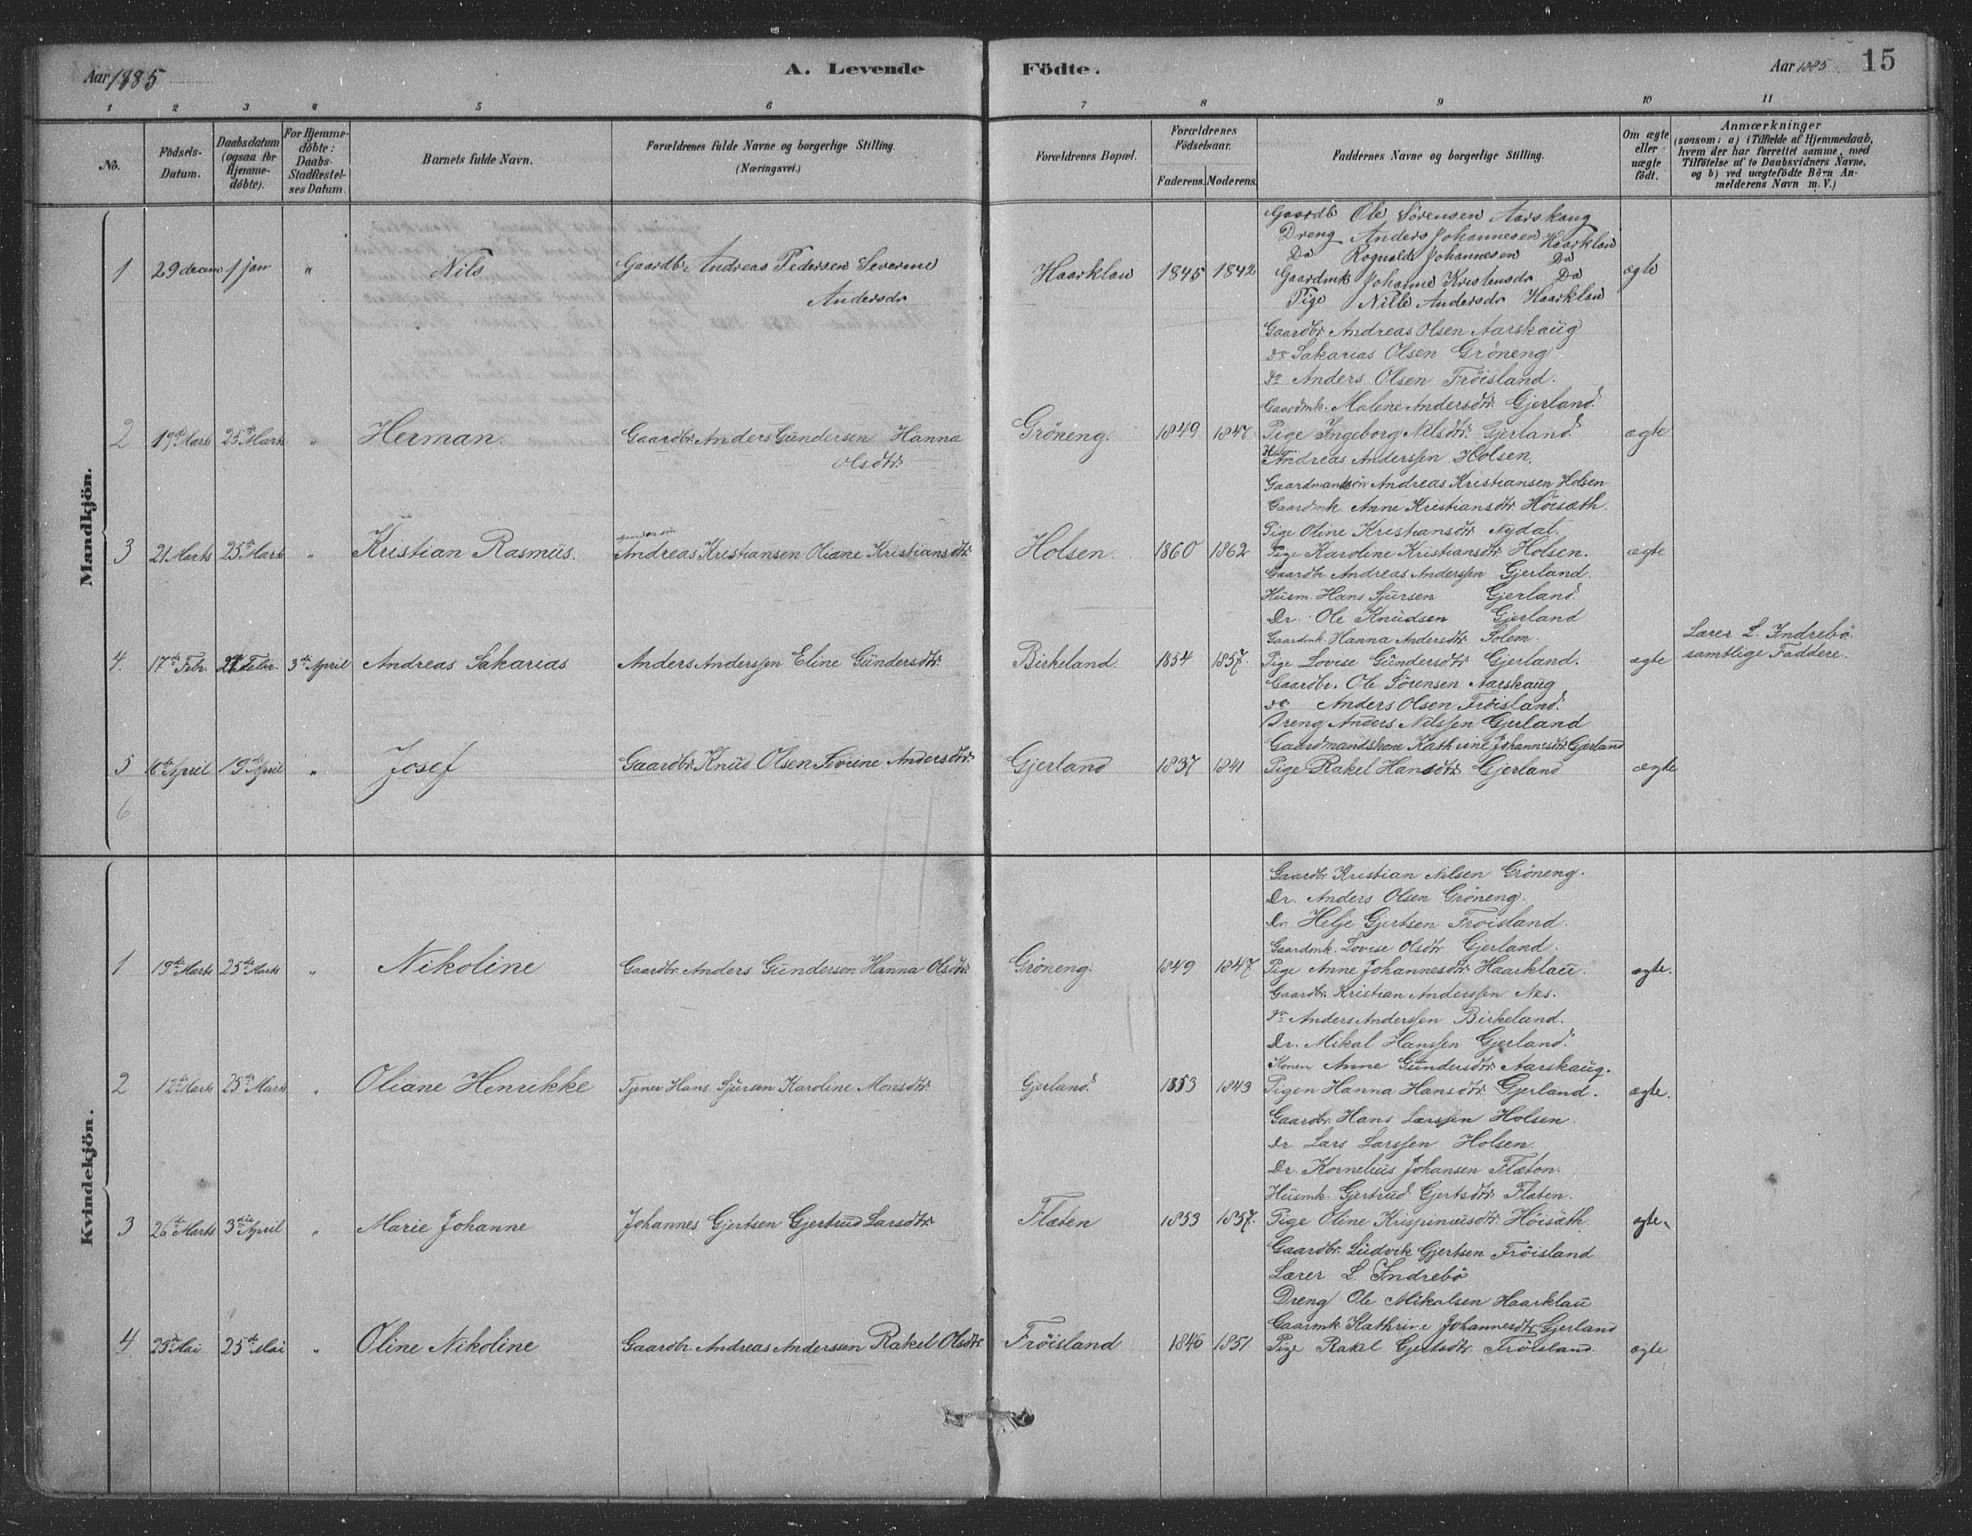 Aar 1885
A. Levende Födte.
Aar 1885. 15
1 2 3 4 5 6 7 8 9 10 11
No.
Födsels-Datum.
Daabsdatum (ogsaa for Hjemme-döbte).
For Hjemme-döbte: Daabs-Stadfæstel-ses Datum.
Barnets fulde Navn.
Forældrenes fulde Navne og borgerlige Stilling (Næringsvei.)
Forældrenes Bopæl.
Forældrenes Födselsaar.
Faderens. Moderens.
Faddernes Navne og borgerlige Stilling.
Om ægte eller uægte födt.
Anmærkninger
(saasom: a) i Tilfælde af Hjemmedaab, hvem der har forrettet samme, med Tilföielse af to Daabsvidners Navne, og b) ved uægtefödte Börn An-melderens Navn m. V.)
Mandkjön.
Gaardb Ole Sörensen Aarskaug
Dreng Anders Johannesen Haarklau
Do Rognald Johannesen Do
1 29 decem 1 jan " Nils Gaardb. Andreas Pedersen Severine Andersdr Haarklau 1845 1842 Gaardmk Johanne Kristensdr Do ægte
Pige Nille Andersdr Haarklau
Gaardbr Andreas Olsen Aarskaug
do Sakarias Olsen Gröneng
do Anders Olsen Fröisland.
Gaardmk. Malene Andersdtr. Gjerland.
2 19de Marts 25de Marts " Herman. Gaardbr. Anders Gundersen Hanna Olsdtr. Gröneng. 1849 1847 Pige Ingeborg Nilsdtr. Gjerland. ægte
Andreas Anderssen Holsen.
Gaardmandssön Andreas Kristiansen Holsen
Gaardmk. Anne Kristiansdtr. Höisæth.
Pige Oline Kristiansdtr Nydal
3 21 Marts 25de Marts " Kristian Rasmus. Andreas Kristiansen Oliane Kristiansdtr Holsen. 1860 1862 Pige Karoline Kristiansdtr Holsen. ægte
Gaardbr Andreas Anderssen Gjerland.
Husm. Hans Sjursen Gjerland.
Dr. Ole Knudsen Gjerland
Gaardmk. Hanna Andersdtr. Solem.
4. 17de Febr. 27 Febr. 3die April Andreas Sakarias Anders Anderssen Eline Gundersdtr Birkeland. 1854 1857. Pige Lovise Gundersdtr Gjerland. ægte Lærer L. Indrebö. samtlige Faddere.
Gaardbr. Ole Sörensen Aarskaug
do Anders Olsen Fröisland.
Dreng Anders Nilssen Gjerland
Gaardmandskone Kathrine Johannesdtr. Gjerland
5 6te April 19de April " Josef Gaardbr. Knud Olsen Sivrine Andersdtr. Gjerland 1837 1841 Pige Rakel Hansdtr. Gjerland ægte
6
Kvindekjön.
Gaardbr Kristian Nilsen Gröneng.
Dr. Anders Olsen Gröneng.
Dr. Helje Gjertsen Fröisland.
Gaardmk. Lovise Olsdtr Gjerland.
1 19de Marts 25de Marts " Nikoline Gaardbr. Anders Gundersen Hanna Olsdtr. Gröneng. 1849 1847 Pige Anne Johannesdtr Haarklau. ægte.
Gaardbr. Kristian Anderssen Nes.
do Anders Anderssen Birkeland.
Dr. Mikal Hanssen Gjerland.
Konen Anne Gundersdtr Aarskaug.
2 12te Marts 25de Marts " Oliane Henrikke Tjener Hans Sjursen Karoline Monsdtr Gjerland. 1853 1843 Pigen Hanna Hansdtr Gjerland. ægte.
Gaardbr. Hans Larssen Holsen.
Dr Lars Larssen Holsen.
Dr. Kornelius Johansen Flaten.
Husmk. Gjertrud Gjertsdtr Flaten.
3 26de Marts 3die April " Marie Johanne Johannes Gjertsen Gjertrud Larsdtr Flaten 1853 1857. Pige Oline Krispinusdtr. Höisæth. ægte.
Gaardbr. Ludvik Gjertsen Fröisland
Lærer L. Indrebö
Dreng Ole Mikalsen Haarklau
Gaarmk Kathrine Johannesdtr. Gjerland
4 25de Mai " Oline Nikoline Gaardbr. Andreas Anderssen Rakel Olsdtr Fröisland 1846 1851 Pige Rakel Gjertsdtr Fröisland. ægte